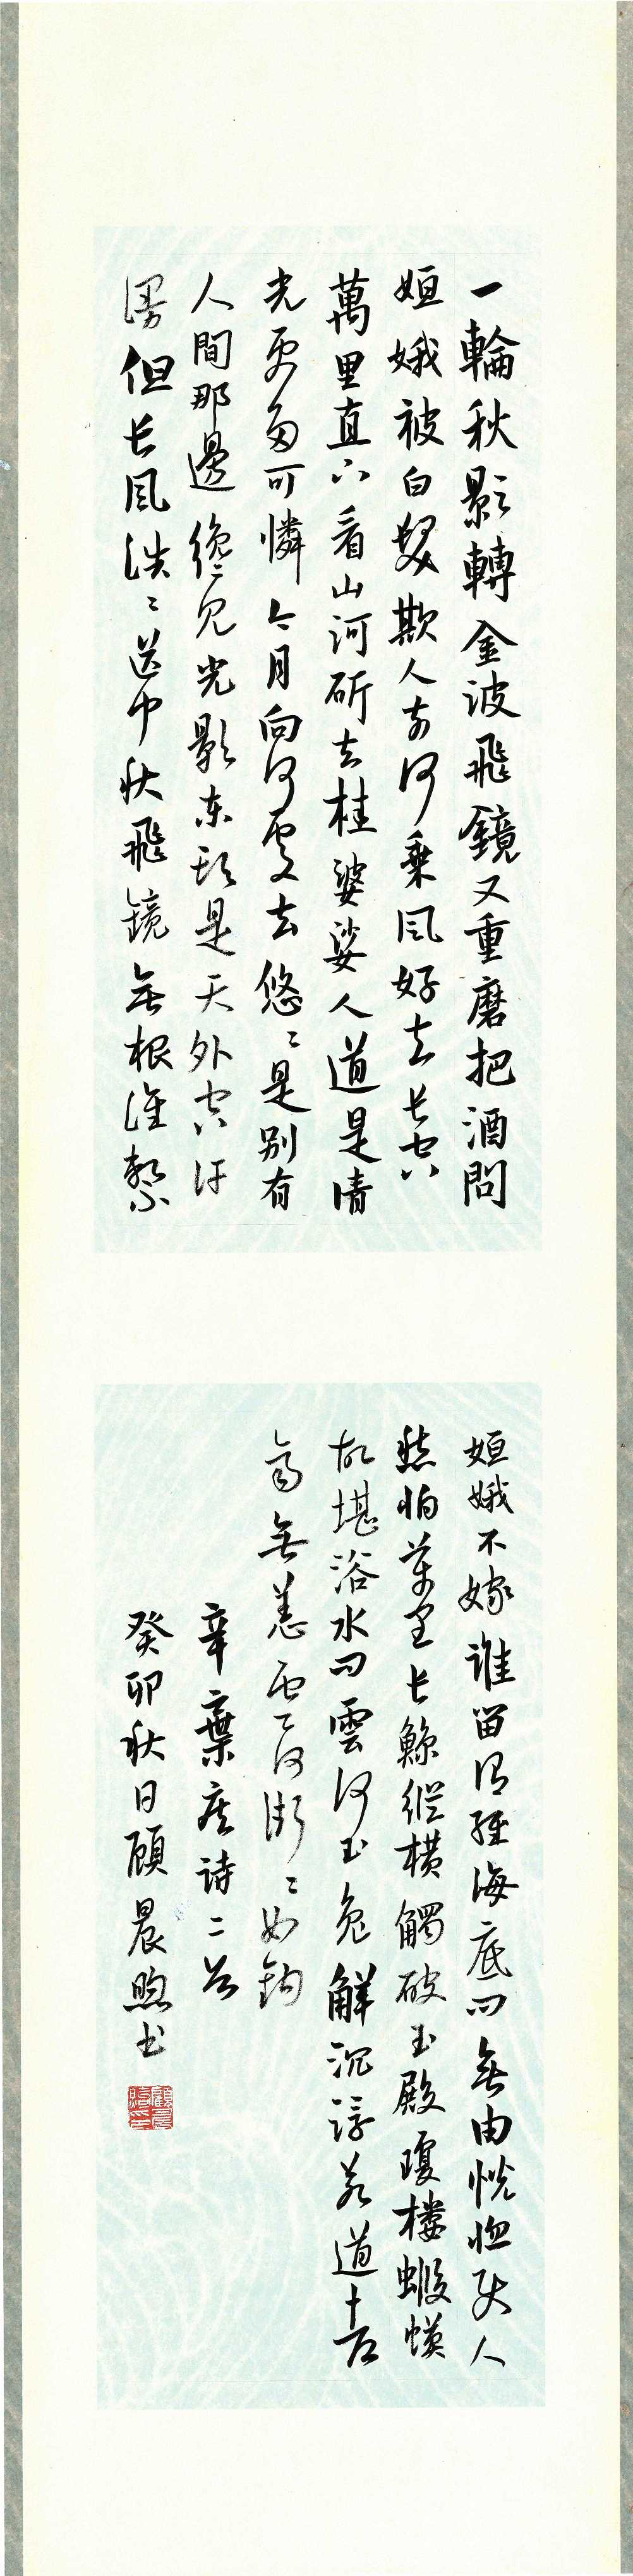 一輪秋影轉金波飛鏡又重磨把酒問
姮娥被白髮欺人奈何乘風好去長空
萬里直下看山河斫去桂婆娑人道是清
光更多可憐今月向何處去悠〻是別有
人間那邊纔見光影東頭是天外空汗
漫但長風浩〻送中秋飛鏡無根誰繫
姮娥不嫁誰留謂經海底問無由恍惚使人
愁怕萬里長鯨縱橫觸破玉殿瓊樓蝦蟆
故堪浴水問雲何玉兔解沉浮若道都
齊無恙云何漸〻如鉤
辛棄疾詩二首
癸卯秋日顧晨煦書
顧晨煦印